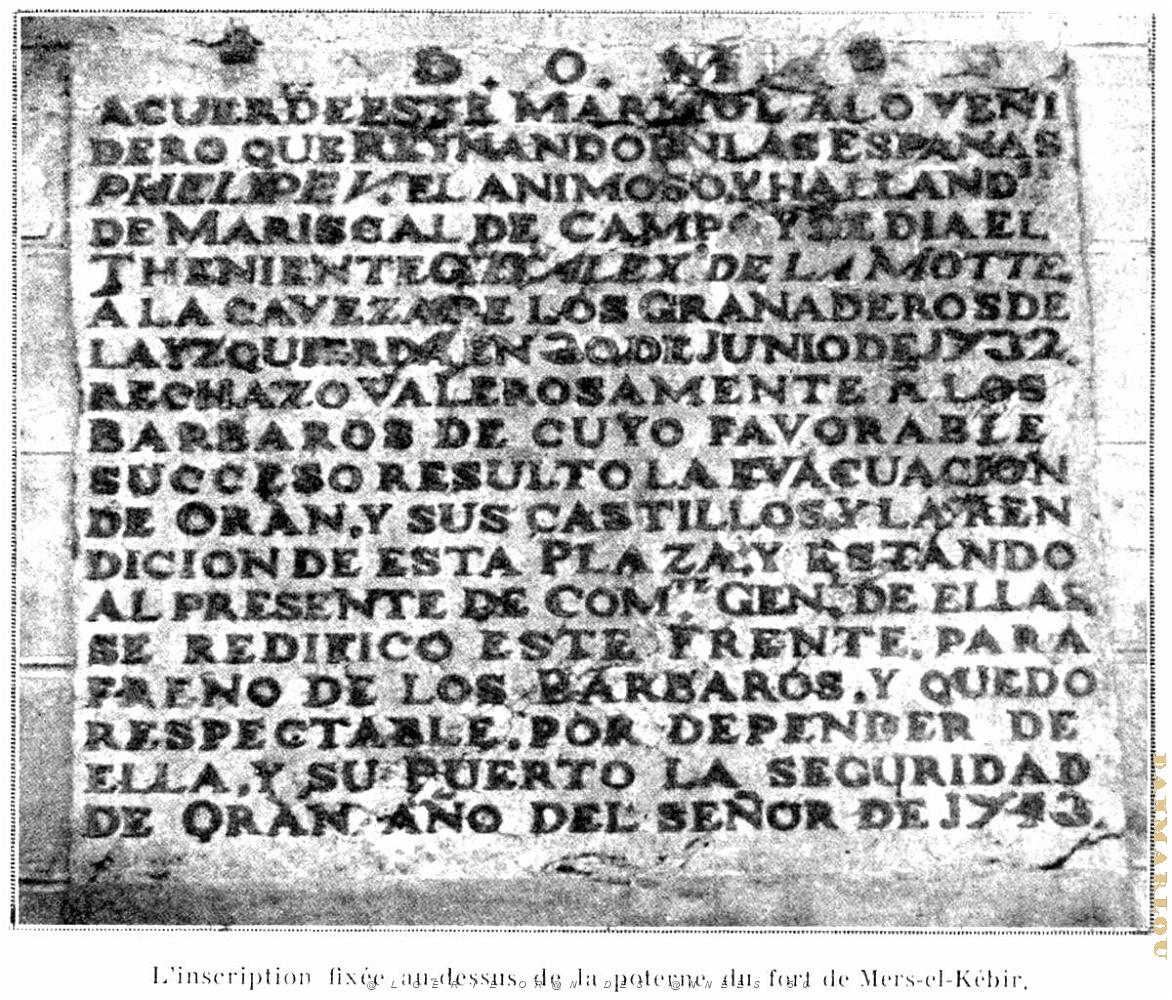 D. O. M.
ACUERDE ESTE MARMOL ALO VENI
DERO QUE REYNANDO EN LAS ESPAÑAS
PHELIPE V. EL ANIMOSO, Y HALLAND
DE MARISCAL DE CAMPO Y DE DIA EL
THENIENTE ALEX DE LA MOTTE
A LA CAVEZA DE LOS GRANADEROS DE
LA YZQUIERDA EN 30 DE JUNIO DE 1732.
RECHAZO VALEROSAMENTE A LOS
BARBAROS DE CUYO FAVORABLE
SUCCESO RESULTO LA EVACUACION
DE ORAN, Y SUS CASTILLOS, Y LA REN
DICION DE ESTA PLAZA, Y ESTANDO
AL PRESENTE DE COM.TE GEN. DE ELLAS
SE REDIFICO ESTE FRENTE, PARA
FRENO DE LOS BARBAROS, Y QUEDO
RESPECTABLE, POR DEPENDER DE
ELLA, Y SU PUERTO LA SEGURIDAD
DE ORAN AÑO DEL SEÑOR DE 1743.
L'inscription fixée au-dessus de la poterne du fort de Mers-el-Kébir.
DARMARLOU